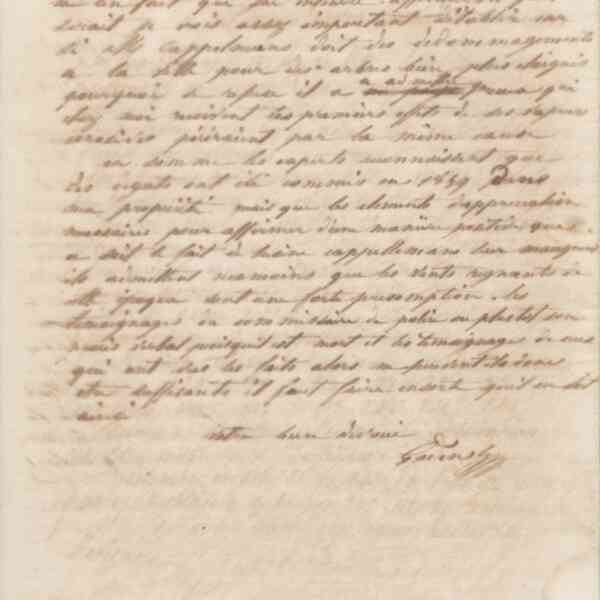 un fait que
serait je crois assez important d'établir car
si Mr Cappelmans doit des dedommagements
a la ville pour des arbres bien plus eloignés
pourquoi se refuse il a a admettre ceux qui
chez moi recoivent les premiers effets de ses vapeurs
periraient par la même cause
en somme les experts reconnaissent que
des degats ont été commis en 1849 Dans
ma propriété mais que les elements d'appreciation
necessaires pour affirmer d'une manière positive que
a soit le fait de usine cappellemans leur manquent
ils admettent neanmoins que les vents regnants a
cette époque sont une forte presomption. les
temoignages du commissaire de police ou plustot son
procès verbal puisqu'il est mort et les temoignages de ceux
qui ont vus les faits alors ne peuvent ils donc
etre suffisants il faut faire ensorte qu'il en soit
ainsi
votre bien devoué